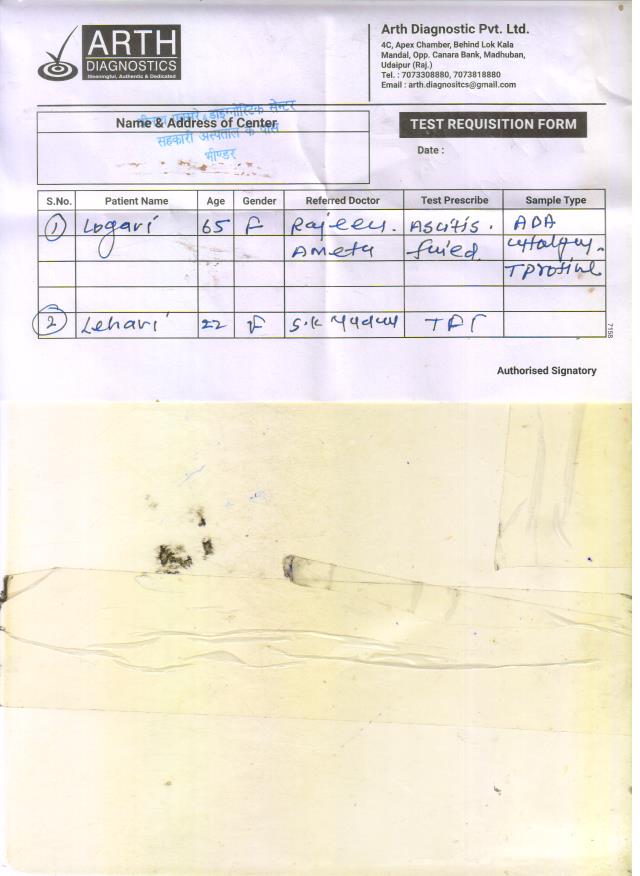 ARTH
DIAGNOSTICS
Meaningful, Authentic & Dedicated
Arth Diagnostic Pvt. Ltd.
4C, Apex Chamber, Behind Lok Kala
Mandal, Opp. Canara Bank, Madhuban,
Udaipur (Raj.)
Tel. : 7073308880, 7073818880
Email : arth.diagnositcs@gmail.com
डाइग्नोस्टिक सेन्टर
Name & Address of Center
सहकारी अस्पताल के पास
भीण्डर
TEST REQUISITION FORM
Date :
S.No. Patient Name Age Gender Referred Doctor Test Prescribe Sample Type
1 Logari 65 F Rajeev. Ascitis. ADA
Ameta
2 Lehari 22 F S.K
7158
Authorised Signatory